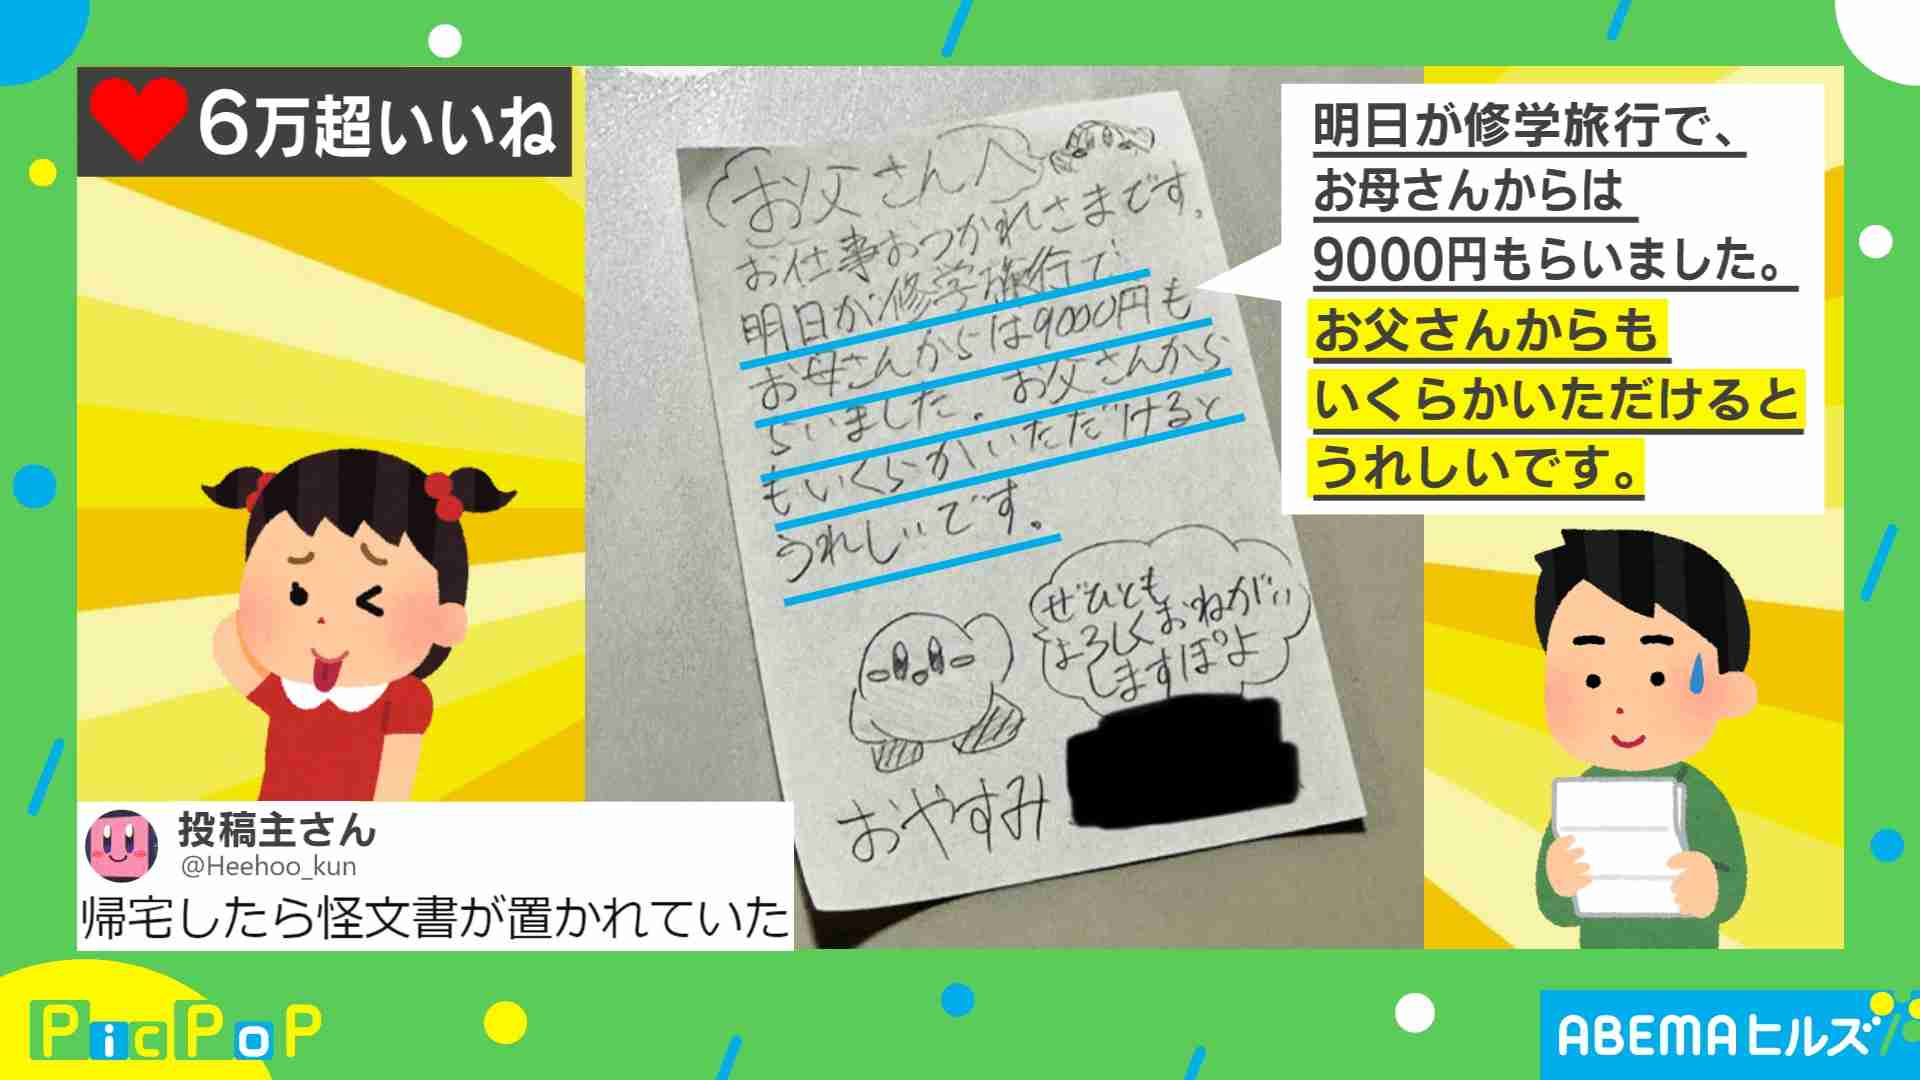 6万超いいね
お父さんへ
お仕事おつかれさまです。
明日が修学旅行で
お母さんからは9000円も
らいました。お父さんから
もいくらかいただけると
うれしいです。
ぜひとも
よろしくおねがい
しますぽよ
おやすみ
明日が修学旅行で、
お母さんからは
9000円もらいました。
お父さんからも
いくらかいただけると
うれしいです。
投稿主さん
@Heehoo_kun
帰宅したら怪文書が置かれていた
PicPoP
ABEMAヒルズ